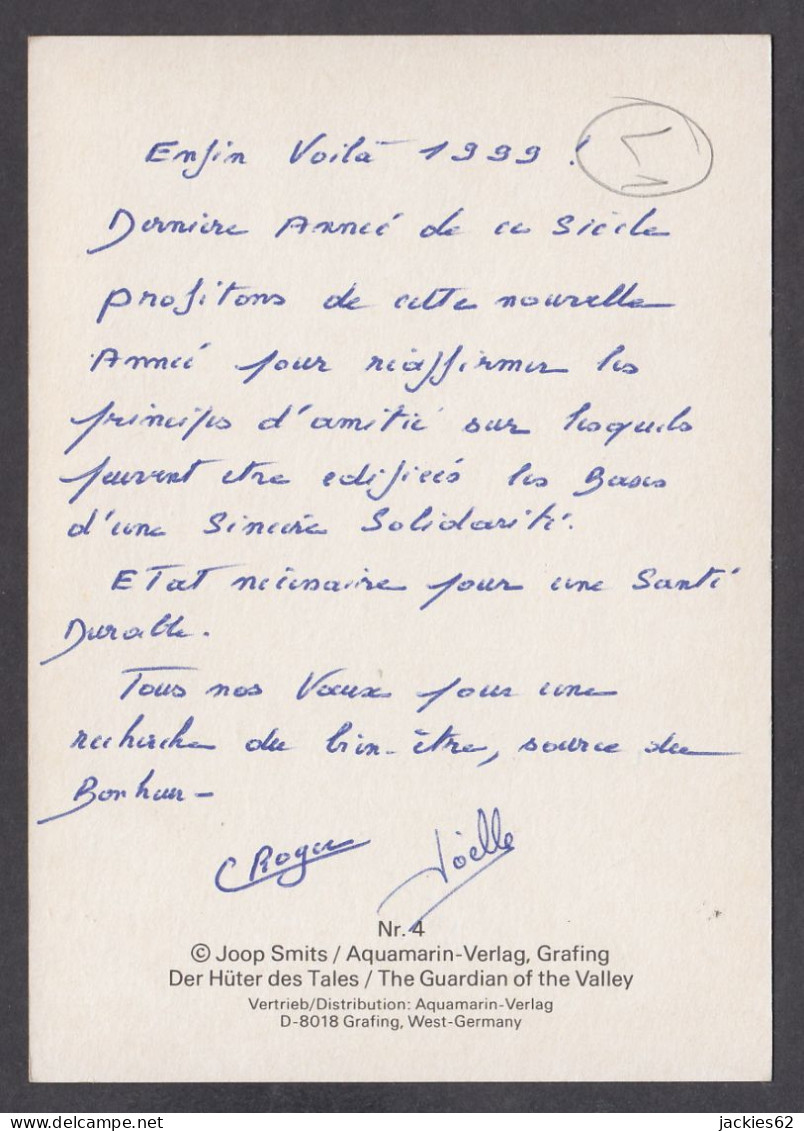 Enfin Voilà 1999 !
Dernière Année de ce Siècle
profitons de cette nouvelle
Année pour réaffirmer les
principes d'amitié sur lesquels
peuvent etre edifiées les Bases
d'une Sincère Solidarité.
ETat nécessaire pour une Santé
Durable.
Tous nos Vœux pour une
recherche du bien-être, source du
Bonheur -
Roger Joëlle
Nr. 4
© Joop Smits / Aquamarin-Verlag, Grafing
Der Hüter des Tales / The Guardian of the Valley
Vertrieb/Distribution: Aquamarin-Verlag
D-8018 Grafing, West-Germany
jackies62